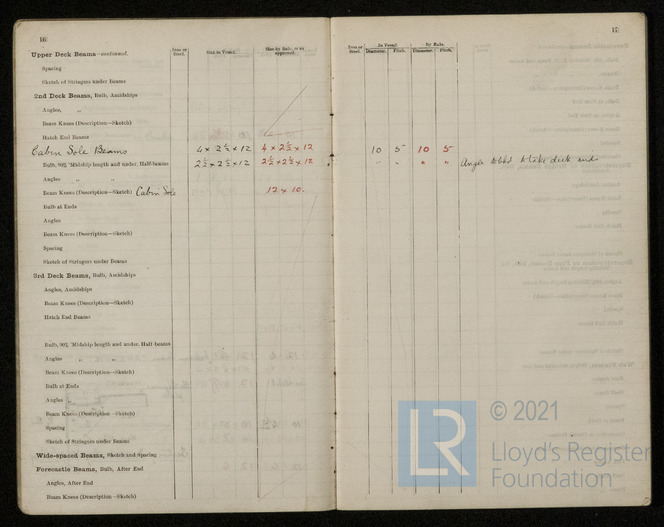 16
Upper Deck Beams—continued.
Iron or Steel.
Size in Vessel.
Size by Rule, or as approved.
Spacing
Sketch of Stringers under Beams
2nd Deck Beams, Bulb, Amidships
Angles, „
Beam Knees (Description—Sketch)
Hatch End Beams
Cabin Sole Beams 4 × 2½ × 12 4 × 2½ × 12
Bulb, 90% 'Midship length and under, Half-beams 2½ × 2½ × 12 2½ × 2½ × 12
Angles „ „
Beam Knees (Description—Sketch) Cabin Sole 12 × 10.
Bulb at Ends
Angles
Beam Knees (Description—Sketch)
Spacing
Sketch of Stringers under Beams
3rd Deck Beams, Bulb, Amidships
Angles, Amidships
Beam Knees (Description—Sketch)
Hatch End Beams
Bulb, 90% 'Midship length and under, Half-beams
Angles „ „
Beam Knees (Description—Sketch)
Bulb at Ends
Angles „
Beam Knees (Description—Sketch)
Spacing
Sketch of Stringers under Beams
Wide-spaced Beams, Sketch and Spacing
Forecastle Beams, Bulb, After End
Angles, After End
Beam Knees (Description—Sketch)
17
Iron or Steel.
In Vessel.
By Rule.
Diameter. Pitch. Diameter. Pitch.
10 5 10 5
" " " " Angle to take deck ends
LR
© 2021
Lloyd's Register
Foundation